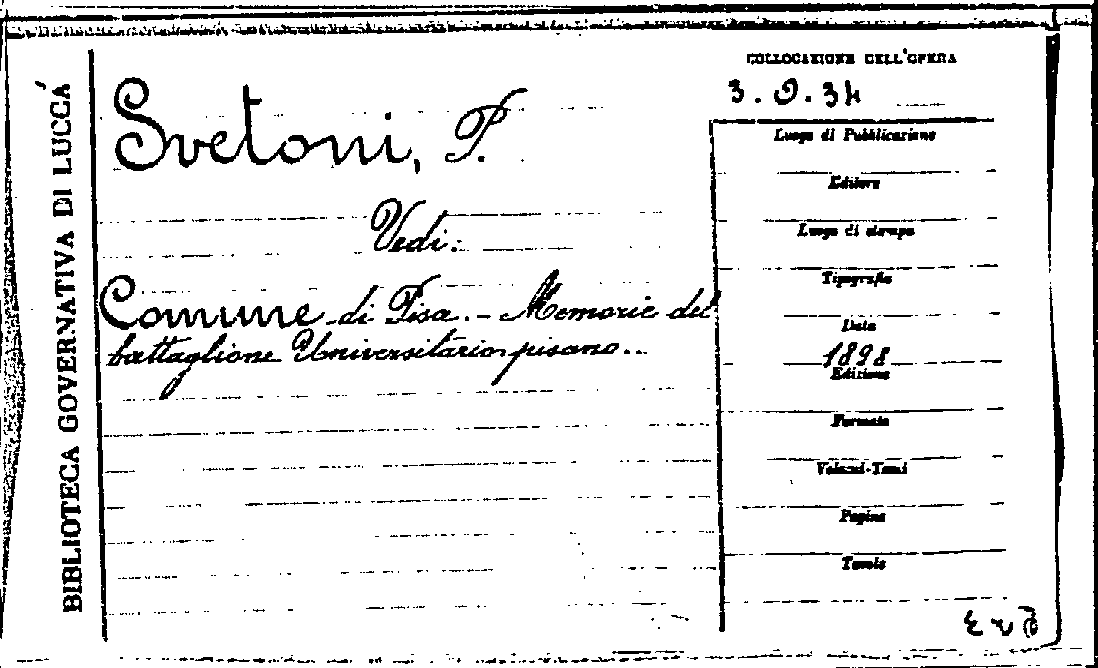 BIBLIOTECA GOVERNATIVA DI LUCCA
COLLOCAZIONE DELL'OPERA
3. O. 34
Svetoni, P.
Vedi:
Comune di Pisa. - Memorie del
battaglione Universitario pisano...
Luogo di Pubblicazione
Editore
Luogo di stampa
Tipografia
Data
1898
Edizione
Formato
Volumi-Tomi
Pagine
Tavole